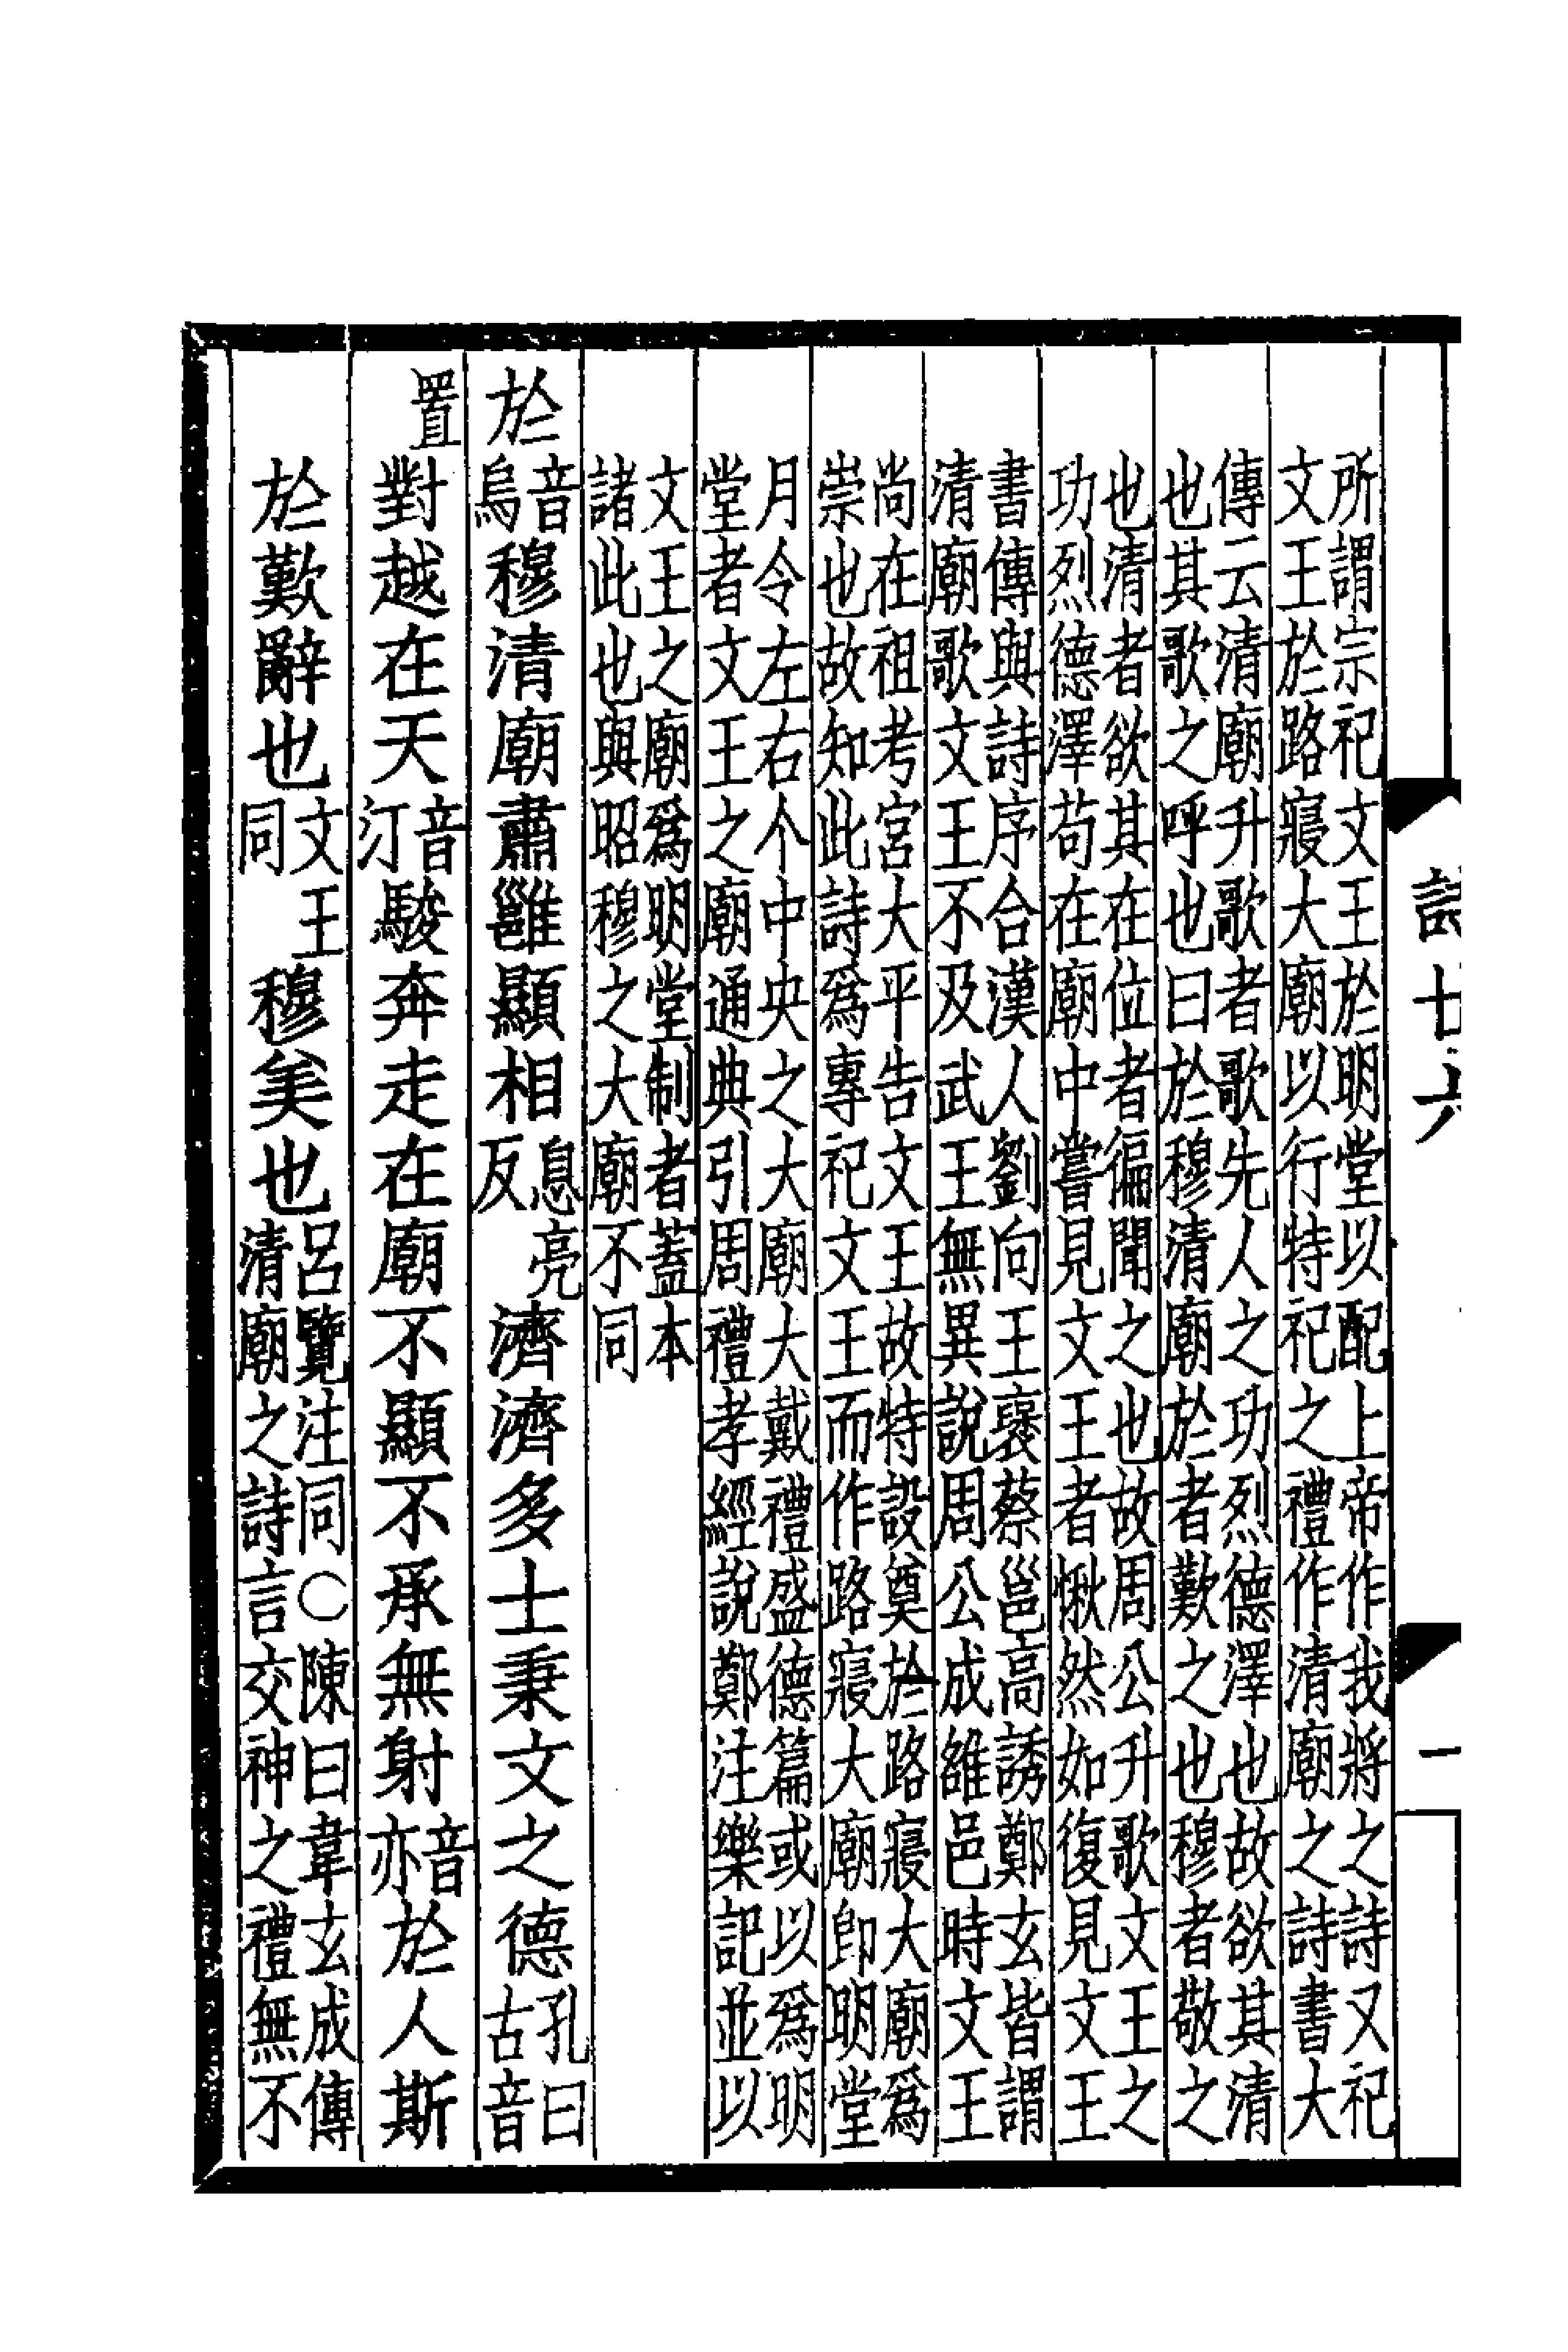 詩廿六
一
所謂宗祀文王於明堂以配上帝作我將之詩又祀
文王於路寢大廟以行特祀之禮作清廟之詩書大
傳云清廟升歌者歌先人之功烈德澤也故欲其清
也其歌之呼也曰於穆清廟於者歎之也穆者敬之
也清者欲其在位者徧聞之也故周公升歌文王之
功烈德澤苟在廟中嘗見文王者愀然如復見文王
書傳與詩序合漢人劉向王褒蔡邕高誘鄭玄皆謂
清廟歌文王不及武王無異說周公成雒邑時文王
尚在祖考宮大平告文王故特設奠於路寢大廟爲
崇也故知此詩爲專祀文王而作路寢大廟卽明堂
月令左右个中央之大廟大戴禮盛德篇或以爲明
堂者文王之廟通典引周禮孝經說鄭注樂記並以
文王之廟爲明堂制者蓋本
諸此也與昭穆之大廟不同
於音烏穆清廟肅雝顯相息亮反濟濟多士秉文之德孔曰古音
置對越在天音汀駿奔走在廟不顯不承無射音亦於人斯
於歎辭也文王同穆美也呂覽注同○陳曰韋玄成傳清廟之詩言交神之禮無不